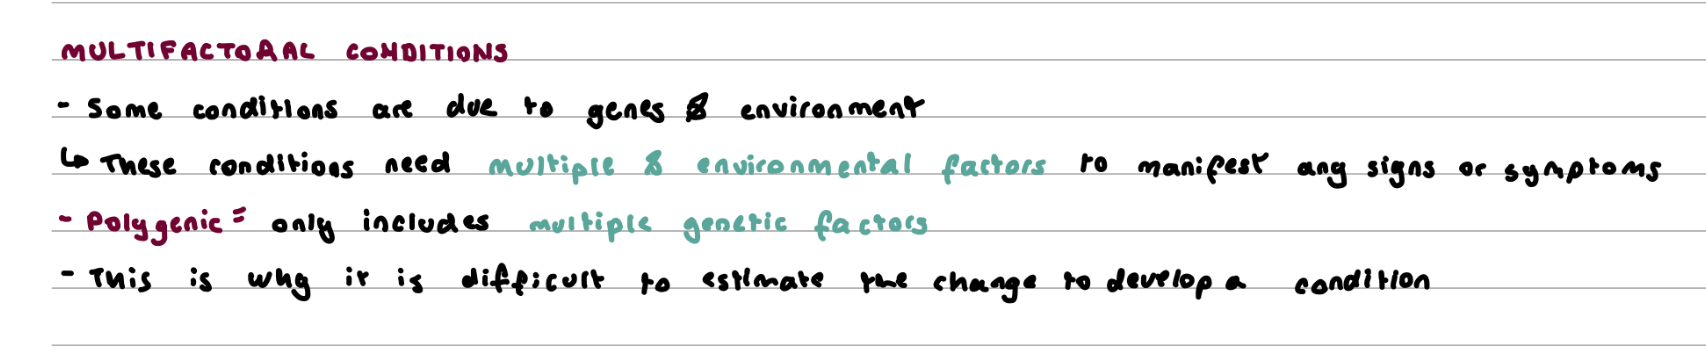 MULTIFACTORAL CONDITIONS
- Some conditions are due to genes & environment
↳ These conditions need multiple & environmental factors to manifest any signs or symptoms
- Polygenic = only includes multiple genetic factors
- This is why it is difficult to estimate the change to develop a condition